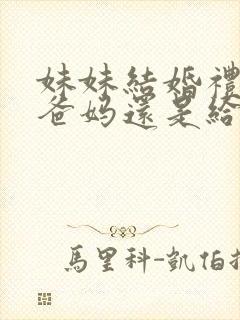 妹妹結婚禮
爸妈還是給
馬里科-凱伯抬